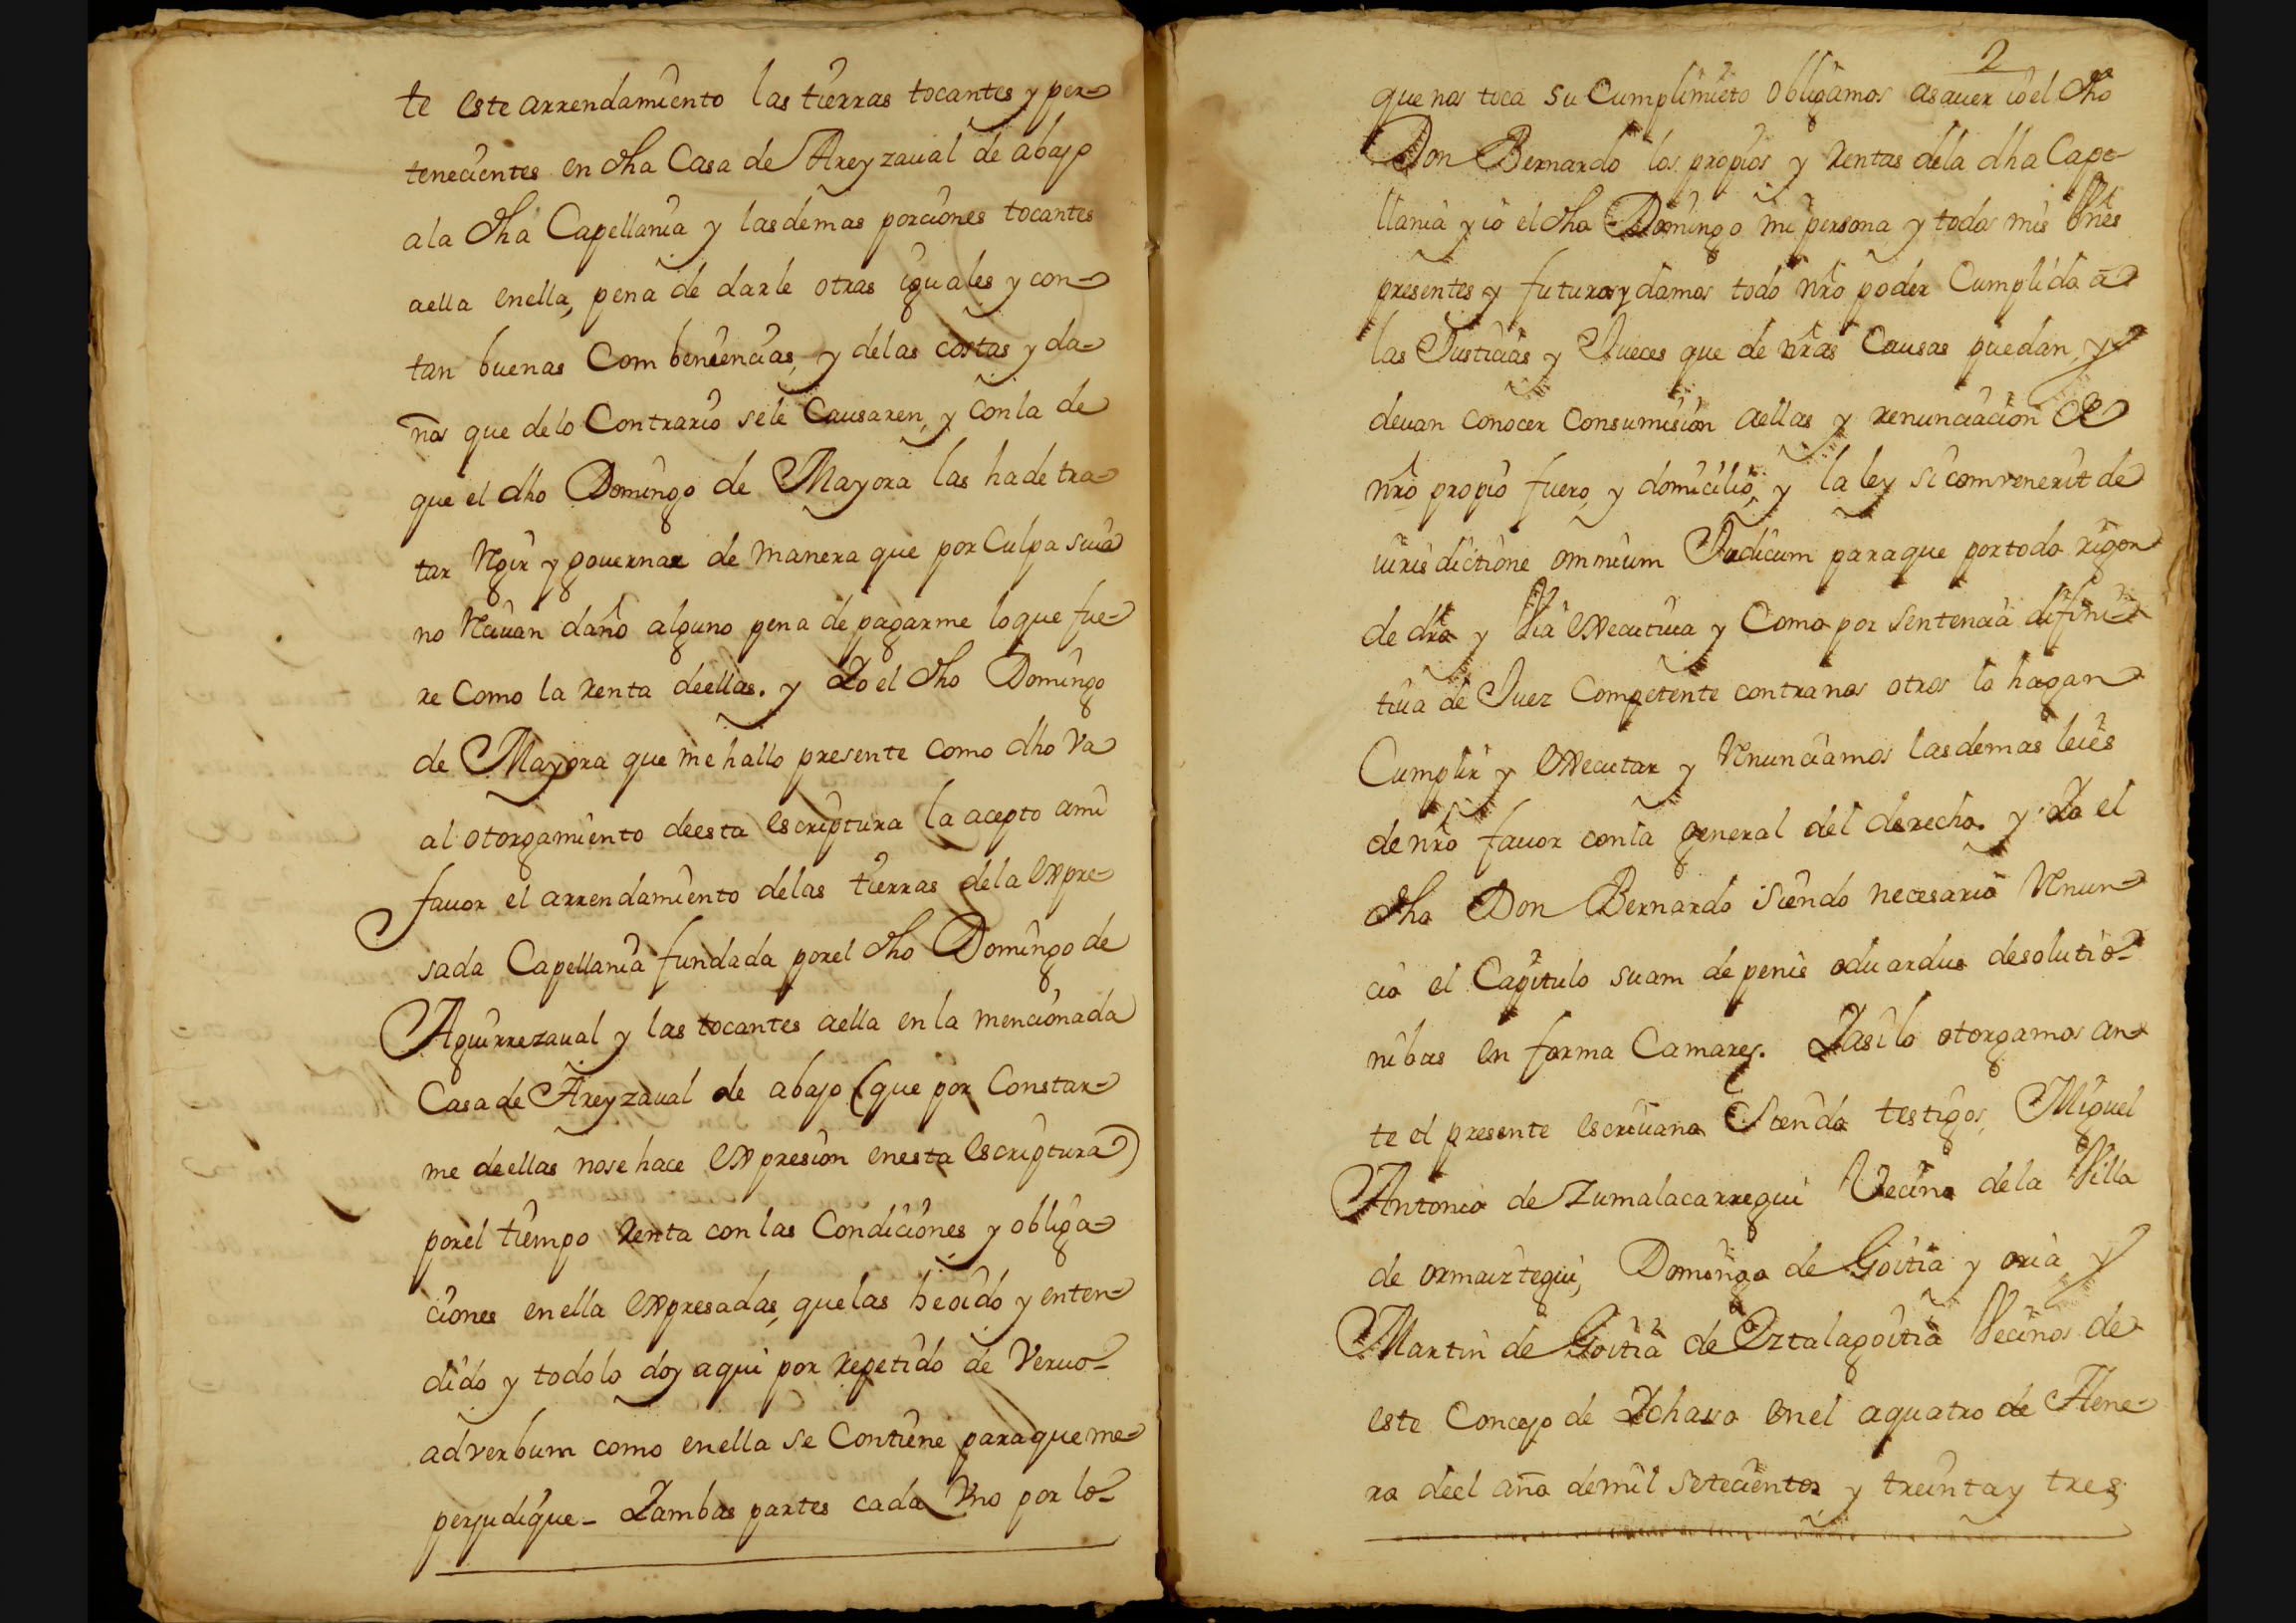 te este arrendamiento las tierras tocantes y per-
tenecientes en dha Casa de Areyzaual de abajo
a la dha Capellania y las demas porciones tocantes
a ella en ella, pena de darle otras iguales y con-
tan buenas Combeniencias, y de las costas y da-
nos que de lo Contrario se le Causaren, y con la de
que el dho Domingo de Mayora las ha de tra-
tar Regir y gouernar de manera que por Culpa suia
no Reciuan daño alguno pena de pagarme lo que fue-
re Como la renta de ellas. y Yo el dho Domingo
de Mayora que me hallo presente como dho va
al otorgamiento de esta escriptura la acepto a mi
fauor el arrendamiento de las tierras de la expre-
sada Capellania fundada por el dho Domingo de
Aguirrezaual y las tocantes a ella en la mencionada
Casa de Areyzaual de abajo (que por Constar-
me de ellas no se hace expresion en esta escriptura)
por el tiempo renta con las Condiciones y obliga-
ciones en ella expresadas, que las he oido y enten-
dido y todo lo doy aqui por repetido de Veruo-
ad verbum como en ella se Contiene para que me-
perjudique - Y ambas partes cada Vno por lo-
2
que nos toca su Cumplimieto obligamos a sauer io el dho
Don Bernardo los propios y rentas de la dha Cape-
llania y io el dho Domingo mi persona y todos mis bnes
presentes y futuros y damos todo nro poder Cumplido a
las Justicias y Jueces que de nras Causas puedan, y
deuan conocer con sumision a ellas y renunciacion de
nro propio fuero, y domicilio, y la ley si comvenerit de
iurisdictione omnium Judicum para que por todo rigor
de dro y Via executiua y Como por sentencia difini-
tiua de Juez Competente contra nos otros lo hagan
Cumplir y executar y Renunciamos las demas leies
de nro fauor con la general del derecho. y Yo el
dho Don Bernardo siendo necesario Renun-
cio el Capitulo suam de penis oduardus de solutio-
nibus en forma Camares. Y asi lo otorgamos an-
te el presente escriuano siendo testigos, Miguel
Antonio de Zumalacarregui Vecino de la Villa
de ormaiztegui, Domingo de Goitia y oria, y
Martin de Goitia de Oztalagoitia Vecinos de
este Concejo de Ychaso en el a quatro de Hene-
ro de el año de mil setecientos y treinta y tres